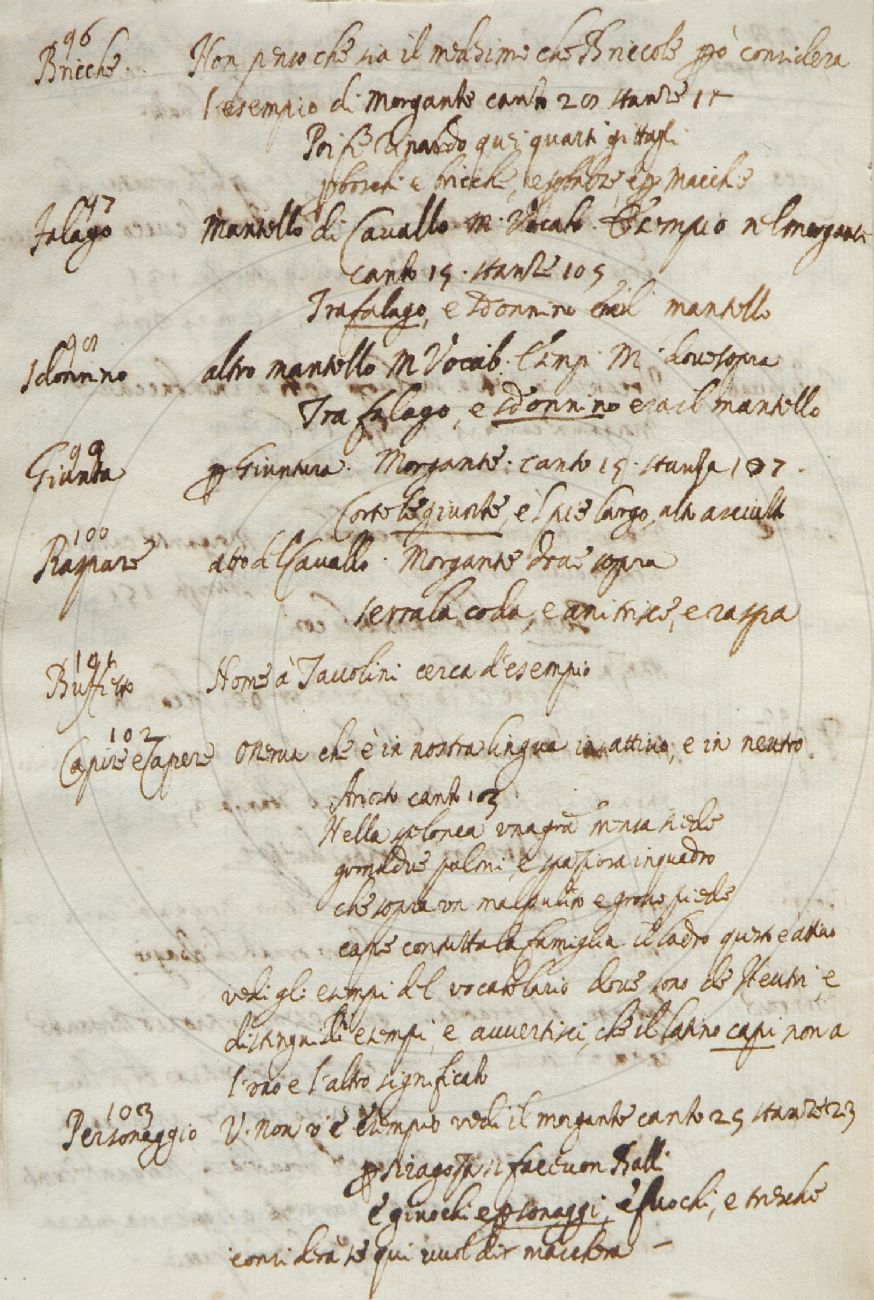 96
Bricche. Non penso che sia il medesimo che Briccole però considera
l'esempio di Morgante canto 20 stanze 1
Poi fe Rinaldo que i quarti gittagli
per boschi e bricche, e per balze, e per macchie
97
Falago Mantello di Cavallo. M. Vocab. Esempio nel morgante
canto 15. stanze 105
Tra falago, e Idonnino era il mantello
98
Idonnino altro mantello M Vocab. l'esemp. M. dove sopra
Tra falago, e Idonnino era il mantello
99
Giunta per Giuntura. Morgante. canto 15. stanza 107.
Corte le giunte, e'l piè largo, alto asciutto
100
Raspare atto di Cavallo. Morgante dove sopra
serra la coda, e anitrisce, e raspa
101
Buffetto Nome à Tavolini cerca d'esempio
102
Capire e Capere Osserva che è in nostra lingua in attivo, e in neutro.
Ariosto canto 13
Nella spelonca una gran mensa siede
grossa due palmi, e spaziosa in quadro
che sopra un mal pulito e grosso piede
cape con tutta la famiglia il ladro questo è attivo
vedi gli esempi del vocabolario dove sono de Neutri, e
distingui gli esempi, e avvertisci, che il latino capi non a
l'uno e l'altro significato
103
Personaggio V. non v'è esempio vedi il morgante canto 25 stanze 23
per Siragozza si faccvon Balli
e giuochi e personaggi, e fuochi, e tresche
considera se qui vuol dir maschera –